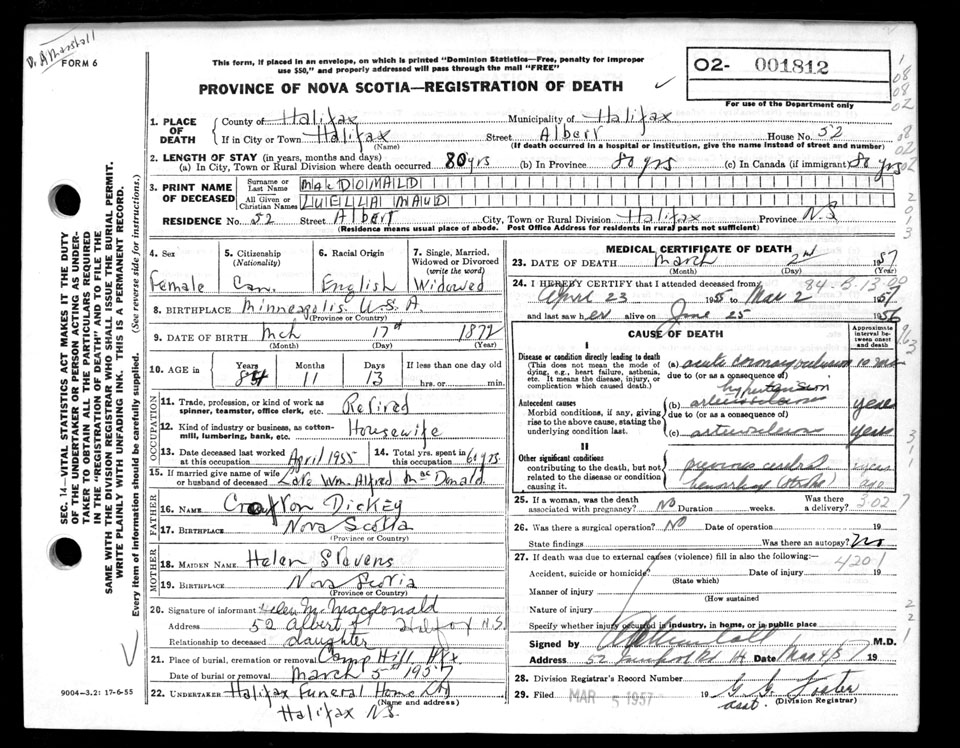 Dr A Marshall
FORM 6
This form, if placed in an envelope, on which is printed "Dominion Statistics—Free, penalty for improper
use $50," and properly addressed will pass through the mail "FREE"
PROVINCE OF NOVA SCOTIA—REGISTRATION OF DEATH
O2- 001812
For use of the Department only
1. PLACE OF DEATH
County of Halifax Municipality of Halifax
If in City or Town Halifax Street Albert House No. 52
(Name) (If death occurred in a hospital or institution, give the name instead of street and number)
2. LENGTH OF STAY (in years, months and days)
(a) In City, Town or Rural Division where death occurred 80 yrs (b) In Province 80 yrs (c) In Canada (if immigrant) 80 yrs
3. PRINT NAME OF DECEASED
Surname or Last Name MacDONALD
All Given or Christian Names LUELLA MAUD
RESIDENCE No. 52 Street Albert City, Town or Rural Division Halifax Province N.S
(Residence means usual place of abode. Post Office Address for residents in rural parts not sufficient)
4. Sex
Female
5. Citizenship
(Nationality)
Can.
6. Racial Origin
English
7. Single, Married, Widowed or Divorced
(write the word)
Widowed
8. BIRTHPLACE Minneapolis. U.S.A.
(Province or Country)
9. DATE OF BIRTH Mch 17th 1872
(Month) (Day) (Year)
10. AGE Years Months Days If less than one day old
84 11 13 hrs. or min.
OCCUPATION
11. Trade, profession, or kind of work as spinner, teamster, office clerk, etc. Retired
12. Kind of industry or business, as cotton-mill, lumbering, bank, etc. Housewife
13. Date deceased last worked at this occupation April 1955
14. Total yrs. spent in this occupation 60 yrs.
15. If married give name of wife or husband of deceased Late Wm Alfred MacDonald
FATHER
16. NAME Croxton Dickey
17. BIRTHPLACE Nova Scotia
(Province or Country)
MOTHER
18. MAIDEN NAME Helen Stevens
19. BIRTHPLACE Nova Scotia
(Province or Country)
20. Signature of informant Helen M. Macdonald
Address 52 Albert St Halifax N.S.
Relationship to deceased daughter
21. Place of burial, cremation or removal Camp Hill Hfx.
Date of burial or removal March 5th 1957
22. UNDERTAKER Halifax Funeral Home Ltd
(Name and address)
Halifax NS.
MEDICAL CERTIFICATE OF DEATH
23. DATE OF DEATH March 2nd 1957
(Month) (Day) (Year)
24. I HEREBY CERTIFY that I attended deceased from
April 23 1955 to Mar 2 1957
and last saw her alive on June 25 1956
CAUSE OF DEATH
Approximate interval between onset and death
I
Disease or condition directly leading to death
(This does not mean the mode of dying, e.g., heart failure, asthenia, etc. It means the disease, injury, or complication which caused death.)
(a) acute coronary occlusion
due to (or as a consequence of)
hypertension
Antecedent causes
Morbid conditions, if any, giving rise to the above cause, stating the underlying condition last.
(b) arteriosclerosis years
due to (or as a consequence of)
(c) arteriosclerosis years
II
Other significant conditions
contributing to the death, but not related to the disease or condition causing it.
previous cerebral
hemorrhage (stroke) ago
25. If a woman, was the death associated with pregnancy? NO Duration weeks. Was there a delivery?
26. Was there a surgical operation? NO Date of operation 19
State findings Was there an autopsy? No
27. If death was due to external causes (violence) fill in also the following:
4201
Accident, suicide or homicide? Date of injury 19
(State which)
Manner of injury
(How sustained
Nature of injury
Specify whether injury occurred in industry, in home, or in public place
Signed by M.D.
Address 52 Date Mar 4/57 19
28. Division Registrar's Record Number
29. Filed MAR 5 1957 19 G. G. Foster
asst. (Division Registrar)
SEC. 14—VITAL STATISTICS ACT MAKES IT THE DUTY
OF THE UNDERTAKER OR PERSON ACTING AS UNDER-
TAKER TO OBTAIN ALL THE PARTICULARS REQUIRED
IN THE "REGISTRATION OF DEATH" AND TO FILE THE
SAME WITH THE DIVISION REGISTRAR WHO SHALL ISSUE THE BURIAL PERMIT.
WRITE PLAINLY WITH UNFADING INK. THIS IS A PERMANENT RECORD.
Every item of information should be carefully supplied. (See reverse side for instructions.)
9004-3.2: 17-6-55